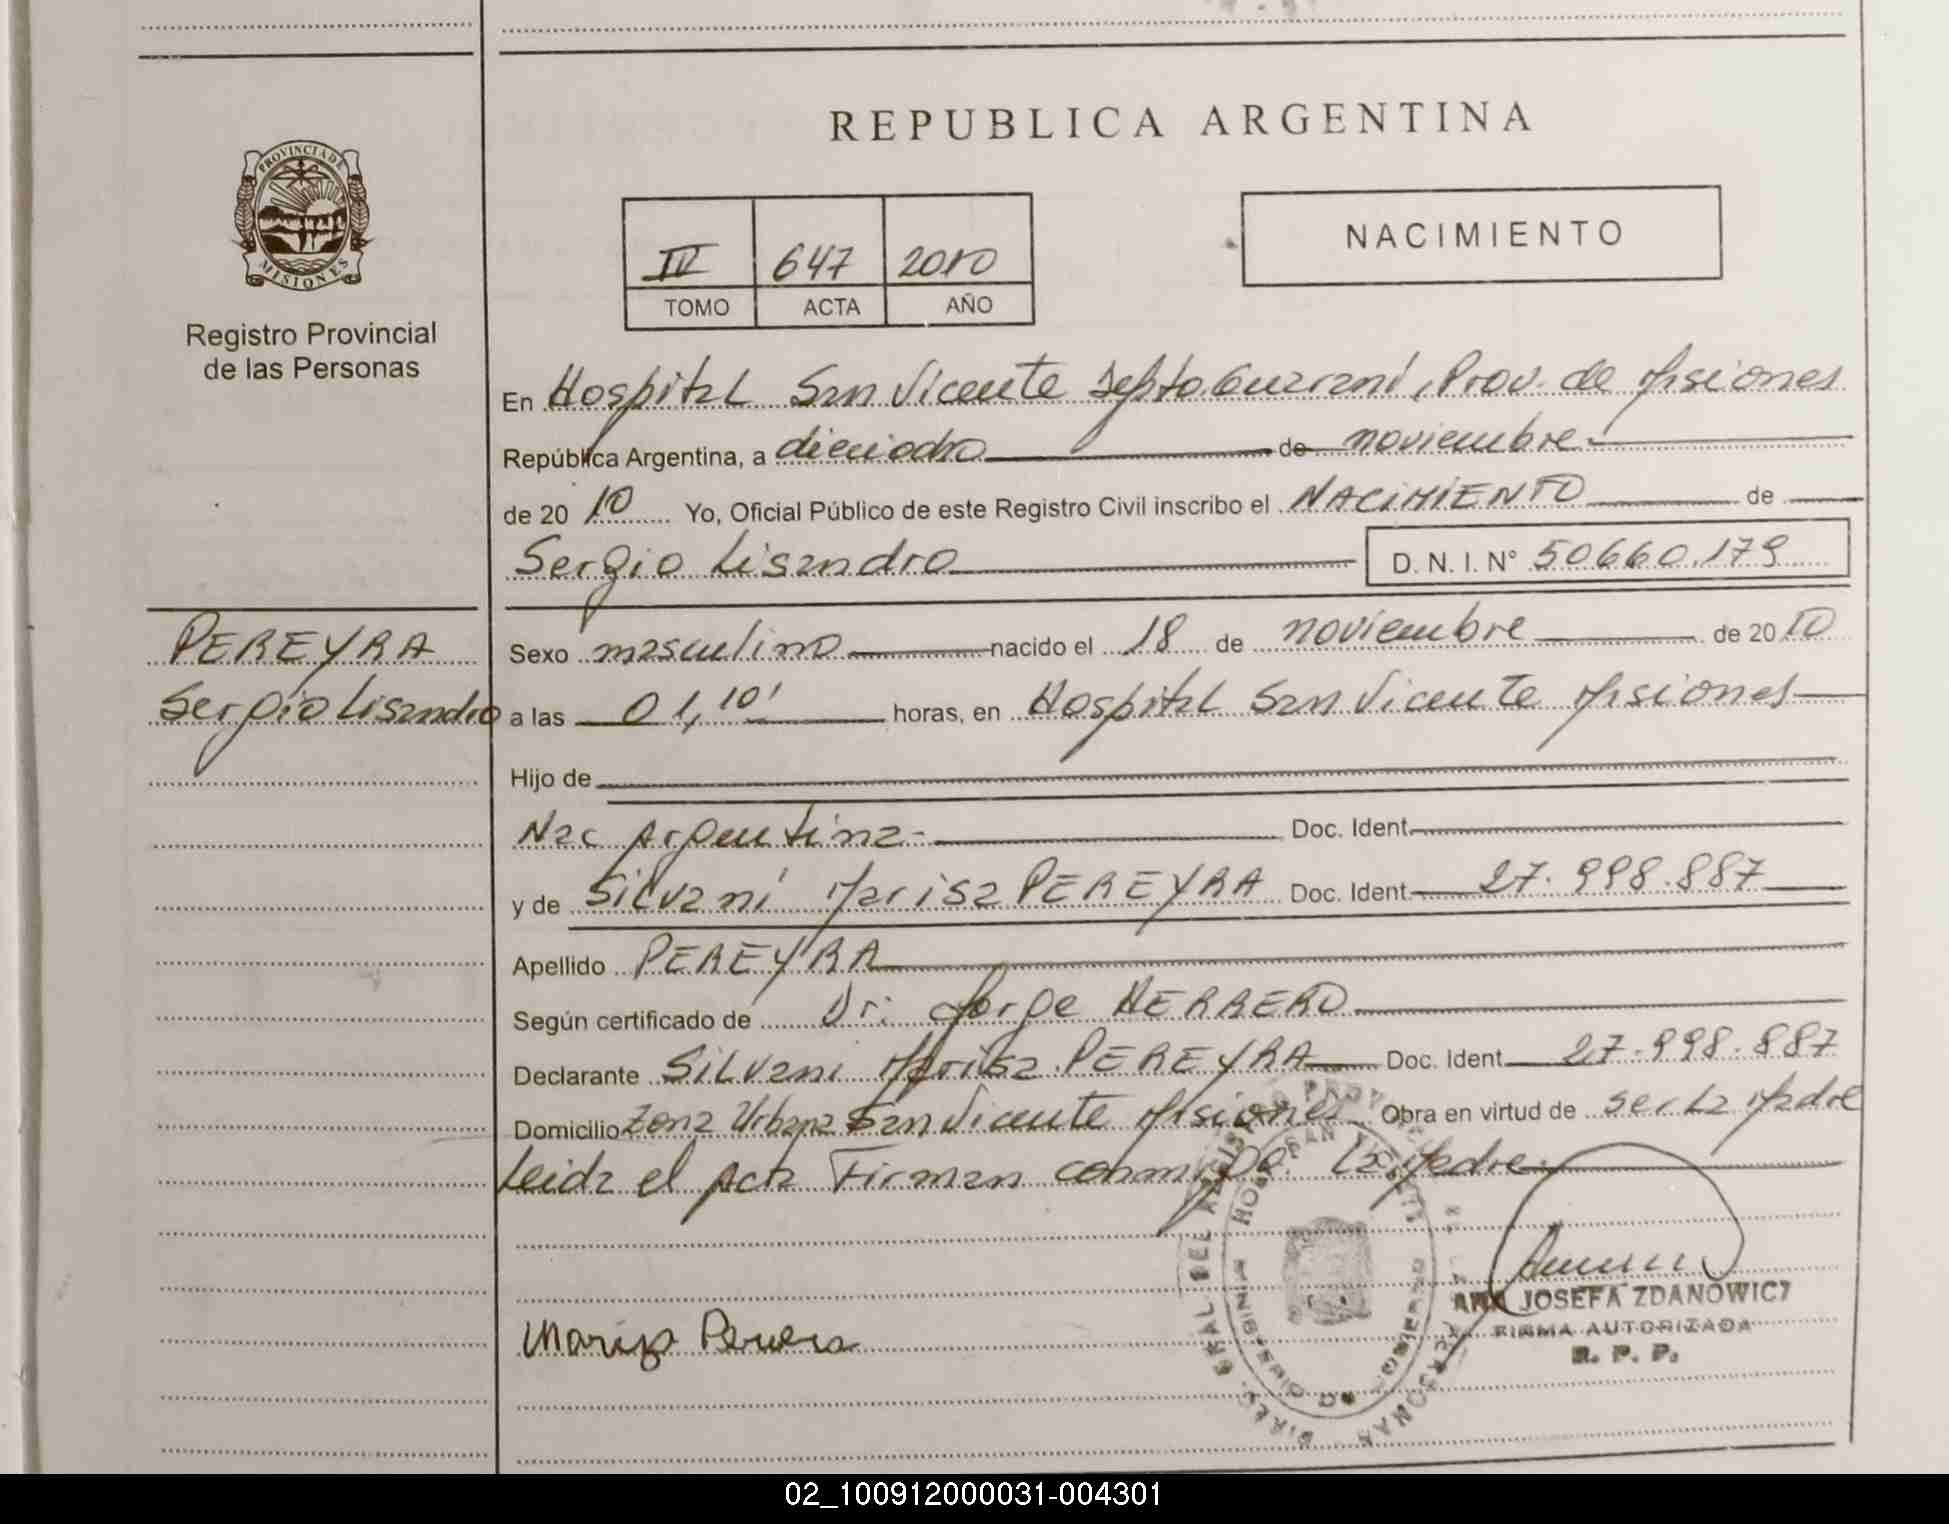 REPUBLICA ARGENTINA
PROVINCIA DE
MISIONES
Registro Provincial
de las Personas
IV 647 2010
TOMO ACTA AÑO
NACIMIENTO
En Hospital San Vicente Depto. Guaraní, Prov. de Misiones
República Argentina, a dieciocho de noviembre
de 20 10 Yo, Oficial Público de este Registro Civil inscribo el NACIMIENTO de
Sergio Lisandro D. N. I. N° 50660.179
PEREYRA
Sergio Lisandro
Sexo masculino nacido el 18 de noviembre de 20 10
a las 01,10' horas, en Hospital San Vicente Misiones
Hijo de
Nac Argentina Doc. Ident.
y de Silvani Marisa PEREYRA Doc. Ident. 27.998.887
Apellido PEREYRA
Según certificado de Dr: Jorge HERRERO
Declarante Silvani Marisa PEREYRA Doc. Ident. 27.998.887
Domicilio Zona Urbana San Vicente Misiones Obra en virtud de ser La Madre
Leida el Acta Firman conmigo: La Madre.
ANA JOSEFA ZDANOWICZ
FIRMA AUTORIZADA
R. P. P.
02_100912000031-004301